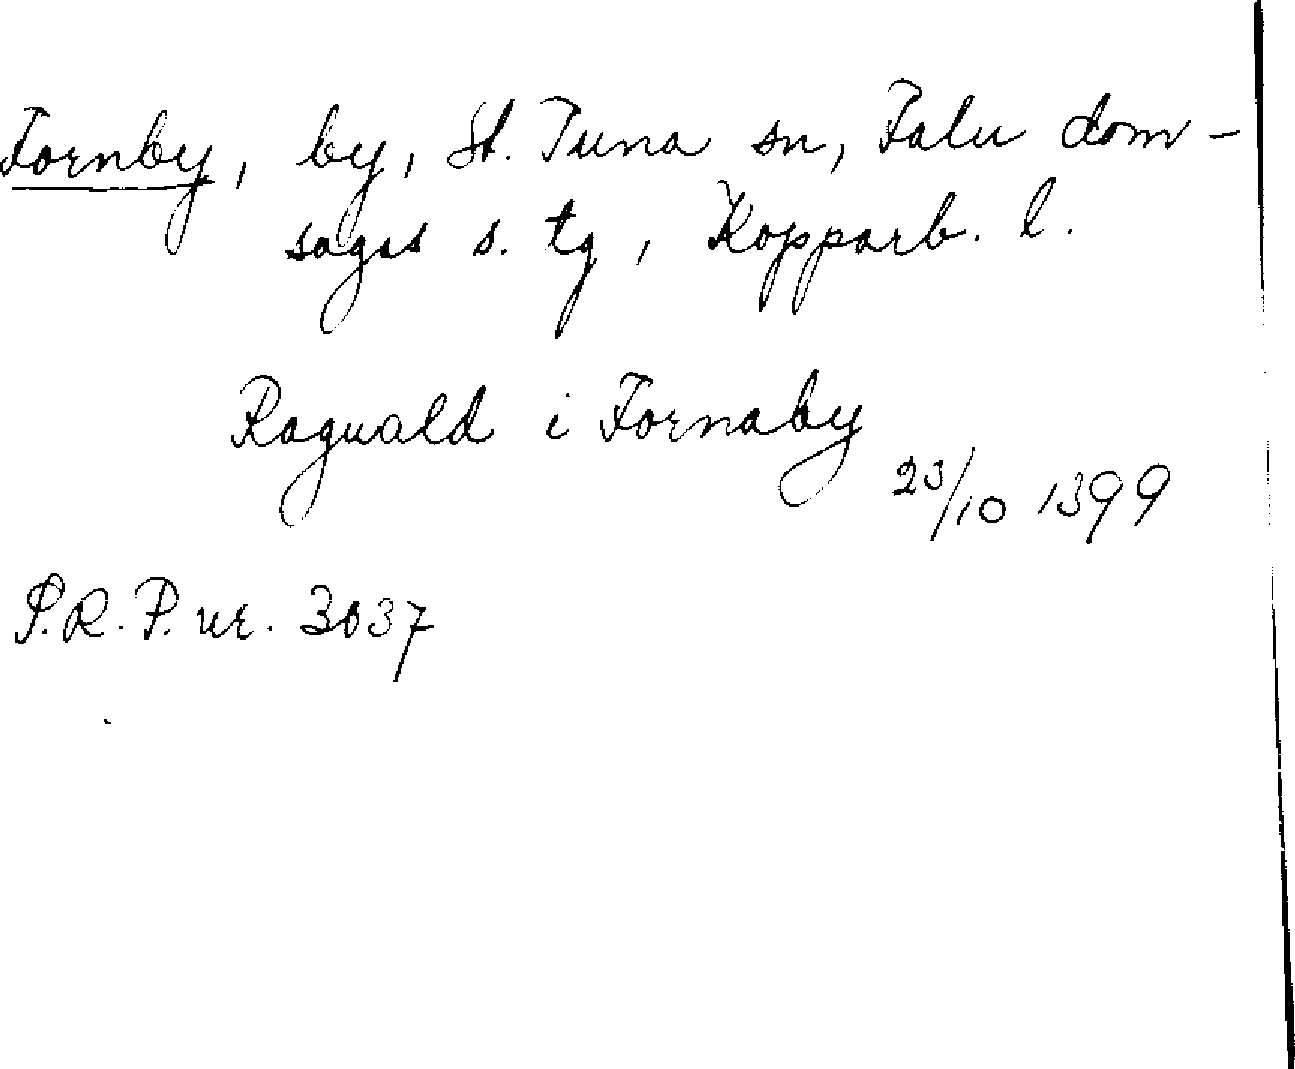 Fornby, by, St. Tuna sn, Falu dom-
sagas s. tg, Kopparb. l.
Raguald i Fornaby
23/10 1399
P.R.P. nr. 3037